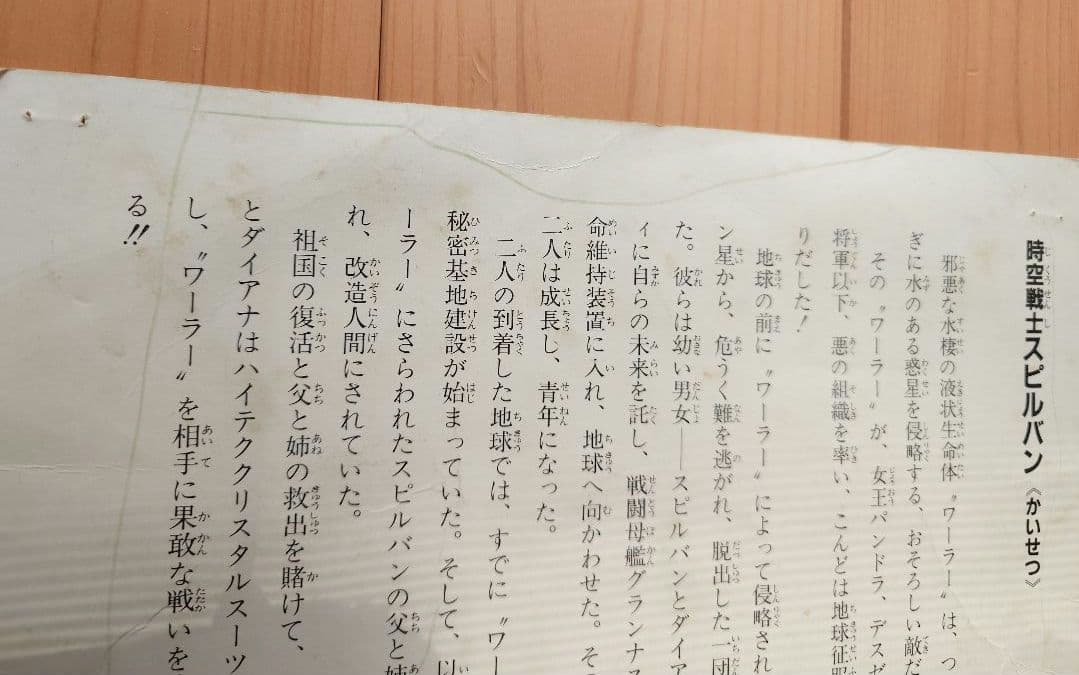 時空戦士スピルバン《かいせつ》
邪悪な水棲の液状生命体〝ワーラー〟は、つ
ぎに水のある惑星を侵略する、おそろしい敵だ
その〝ワーラー〟が、女王パンドラ、デスゼ
将軍以下、悪の組織を率い、こんどは地球征服
りだした!
地球の前に〝ワーラー〟によって侵略され
ン星から、危うく難を逃がれ、脱出した一団
た。彼らは幼い男女──スピルバンとダイア
ィに自らの未来を託し、戦闘母艦グランナス
命維持装置に入れ、地球へ向かわせた。そ
二人は成長し、青年になった。
二人の到着した地球では、すでに〝ワー
秘密基地建設が始まっていた。そして、以
ーラー〟にさらわれたスピルバンの父と姉
れ、改造人間にされていた。
祖国の復活と父と姉の救出を賭けて、
とダイアナはハイテククリスタルスーツ
し、〝ワーラー〟を相手に果敢な戦いを
る!!